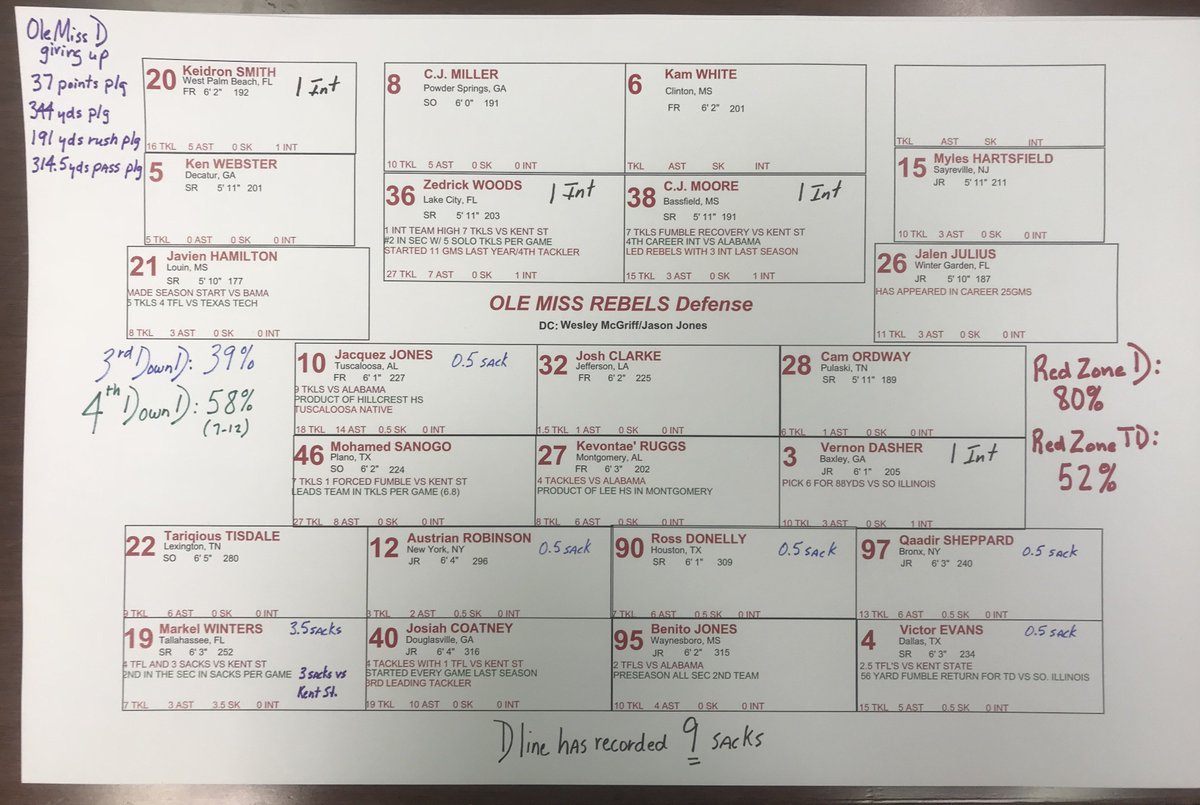 Ole Miss D
giving up
37 points p/g
344 yds p/g
191 yds rush p/g
314.5 yds pass p/g
20 Keidron SMITH
West Palm Beach, FL
FR 6' 2" 192
1 Int
16 TKL 5 AST 0 SK 1 INT
8 C.J. MILLER
Powder Springs, GA
SO 6' 0" 191
10 TKL 5 AST 0 SK 0 INT
6 Kam WHITE
Clinton, MS
FR 6' 2" 201
TKL AST SK INT
TKL AST SK INT
5 Ken WEBSTER
Decatur, GA
SR 5' 11" 201
5 TKL 0 AST 0 SK 0 INT
36 Zedrick WOODS
Lake City, FL
SR 5' 11" 203
1 Int
1 INT TEAM HIGH 7 TKLS VS KENT ST
#2 IN SEC W/ 5 SOLO TKLS PER GAME
STARTED 11 GMS LAST YEAR/4TH TACKLER
27 TKL 7 AST 0 SK 1 INT
38 C.J. MOORE
Bassfield, MS
SR 5' 11" 191
1 Int
7 TKLS FUMBLE RECOVERY VS KENT ST
4TH CAREER INT VS ALABAMA
LED REBELS WITH 3 INT LAST SEASON
15 TKL 3 AST 0 SK 1 INT
15 Myles HARTSFIELD
Sayreville, NJ
JR 5' 11" 211
10 TKL 3 AST 0 SK 0 INT
21 Javien HAMILTON
Louin, MS
SR 5' 10" 177
MADE SEASON START VS BAMA
5 TKLS 4 TFL VS TEXAS TECH
8 TKL 3 AST 0 SK 0 INT
26 Jalen JULIUS
Winter Garden, FL
JR 5' 10" 187
HAS APPEARED IN CAREER 25GMS
11 TKL 3 AST 0 SK 0 INT
OLE MISS REBELS Defense
DC: Wesley McGriff/Jason Jones
3rd Down D: 39%
4th Down D: 58%
(7-12)
10 Jacquez JONES
Tuscaloosa, AL
FR 6' 1" 227
0.5 sack
9 TKLS VS ALABAMA
PRODUCT OF HILLCREST HS
TUSCALOOSA NATIVE
18 TKL 14 AST 0.5 SK 0 INT
32 Josh CLARKE
Jefferson, LA
FR 6' 2" 225
1.5 TKL 1 AST 0 SK 0 INT
28 Cam ORDWAY
Pulaski, TN
SR 5' 11" 189
6 TKL 1 AST 0 SK 0 INT
Red Zone D:
80%
Red Zone TD:
52%
46 Mohamed SANOGO
Plano, TX
SO 6' 2" 224
7 TKLS 1 FORCED FUMBLE VS KENT ST
LEADS TEAM IN TKLS PER GAME (6.8)
27 TKL 8 AST 0 SK 0 INT
27 Kevontae' RUGGS
Montgomery, AL
FR 6' 3" 202
4 TACKLES VS ALABAMA
PRODUCT OF LEE HS IN MONTGOMERY
8 TKL 6 AST 0 SK 0 INT
3 Vernon DASHER
Baxley, GA
JR 6' 1" 205
1 Int
PICK 6 FOR 88YDS VS SO ILLINOIS
10 TKL 3 AST 0 SK 1 INT
22 Tariqious TISDALE
Lexington, TN
SO 6' 5" 280
9 TKL 6 AST 0 SK 0 INT
12 Austrian ROBINSON
New York, NY
JR 6' 4" 296
0.5 sack
3 TKL 2 AST 0.5 SK 0 INT
90 Ross DONELLY
Houston, TX
SR 6' 1" 309
0.5 sack
7 TKL 6 AST 0.5 SK 0 INT
97 Qaadir SHEPPARD
Bronx, NY
JR 6' 3" 240
0.5 sack
13 TKL 6 AST 0.5 SK 0 INT
19 Markel WINTERS
Tallahassee, FL
SR 6' 3" 252
3.5 sacks
4 TFL AND 3 SACKS VS KENT ST
2ND IN THE SEC IN SACKS PER GAME
3 sacks vs
Kent St.
7 TKL 3 AST 3.5 SK 0 INT
40 Josiah COATNEY
Douglasville, GA
JR 6' 4" 316
4 TACKLES WITH 1 TFL VS KENT ST
STARTED EVERY GAME LAST SEASON
3RD LEADING TACKLER
19 TKL 10 AST 0 SK 0 INT
95 Benito JONES
Waynesboro, MS
JR 6' 2" 315
2 TFLS VS ALABAMA
PRESEASON ALL SEC 2ND TEAM
10 TKL 4 AST 0 SK 0 INT
4 Victor EVANS
Dallas, TX
SR 6' 3" 234
0.5 sack
2.5 TFL'S VS KENT STATE
56 YARD FUMBLE RETURN FOR TD VS SO. ILLINOIS
15 TKL 5 AST 0.5 SK 0 INT
D line has recorded 9 sacks